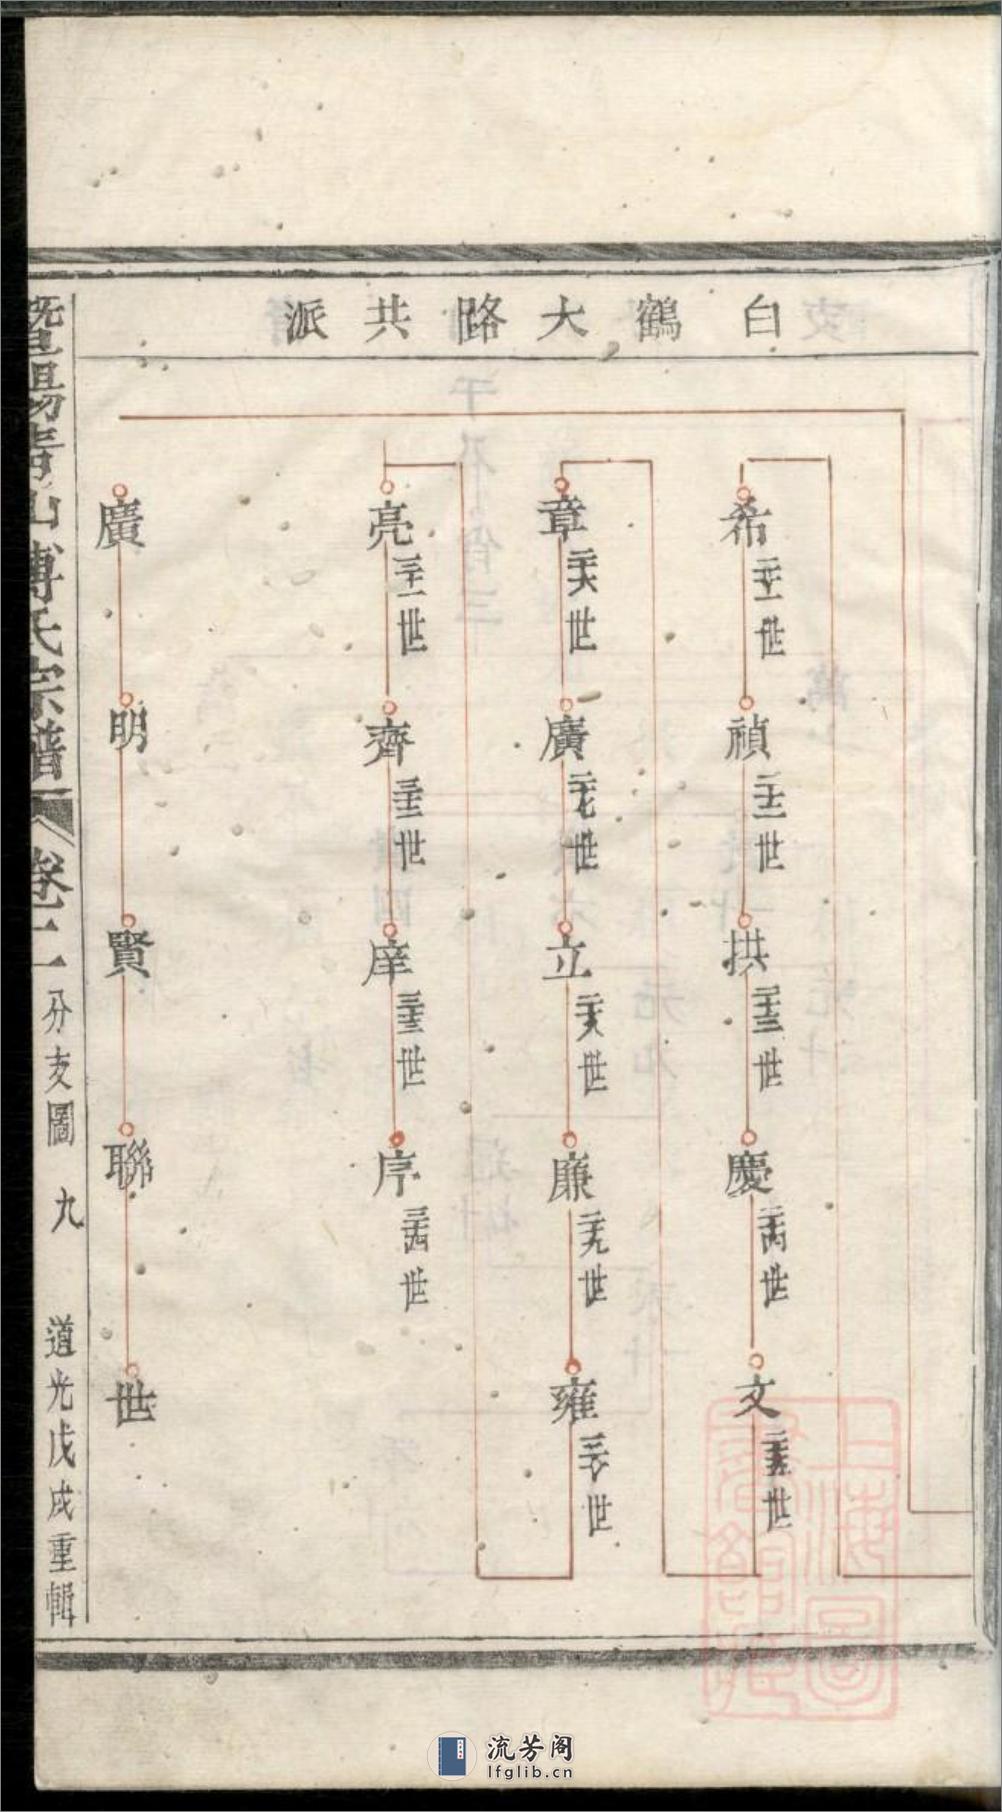 白鶴大路共派
希 二十一世
禎 二十二世
拱 二十三世
慶 二十四世
文 二十五世
章 二十六世
廣 二十七世
立 二十八世
廉 二十九世
雍 三十世
亮 三十一世
齊 三十二世
庠 三十三世
序 三十四世
廣
明
賢
聯
世
暨陽青山傅氏宗譜 卷二 分支圖 九 道光戊戌重輯
上海圖
流芳阁
lfglib.cn